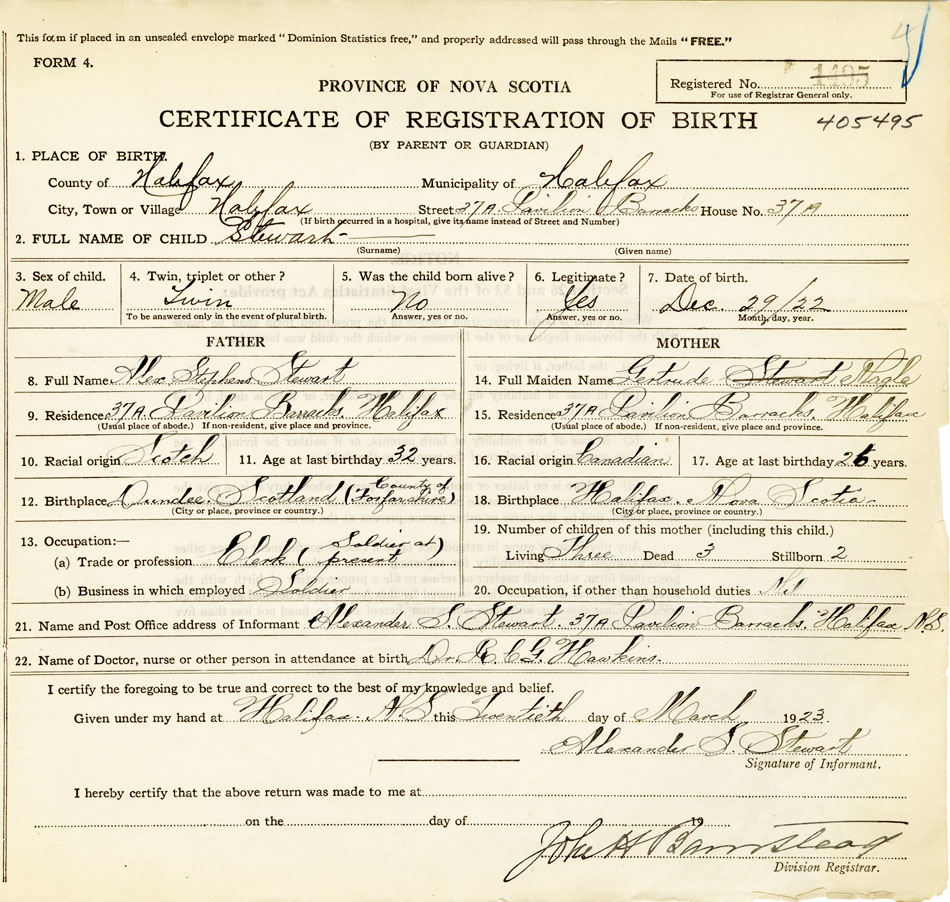 This form if placed in an unsealed envelope marked "Dominion Statistics free," and properly addressed will pass through the Mails "FREE."
FORM 4.
PROVINCE OF NOVA SCOTIA
Registered No. 1495
For use of Registrar General only.
CERTIFICATE OF REGISTRATION OF BIRTH 405495
(BY PARENT OR GUARDIAN)
1. PLACE OF BIRTH.
County of Halifax Municipality of Halifax
City, Town or Village Halifax Street 37A Pavilion Barracks House No. 37A
(If birth occurred in a hospital, give its name instead of Street and Number)
2. FULL NAME OF CHILD Stewart
(Surname) (Given name)
3. Sex of child. 4. Twin, triplet or other? 5. Was the child born alive? 6. Legitimate? 7. Date of birth.
Male Twin No Yes Dec. 29/22
To be answered only in the event of plural birth. Answer, yes or no. Answer, yes or no. Month, day, year.
FATHER MOTHER
8. Full Name Alex Stephens Stewart 14. Full Maiden Name Gertrude Stewart Nagle
9. Residence 37A Pavilion Barracks, Halifax 15. Residence 37A Pavilion Barracks, Halifax
(Usual place of abode.) If non-resident, give place and province. (Usual place of abode.) If non-resident, give place and province.
10. Racial origin Scotch 11. Age at last birthday 32 years. 16. Racial origin Canadian 17. Age at last birthday 26 years.
12. Birthplace Dundee Scotland (County of Forfarshire) 18. Birthplace Halifax. Nova Scotia
(City or place, province or country.) (City or place, province or country.)
13. Occupation:— 19. Number of children of this mother (including this child.)
(a) Trade or profession Clerk (Soldier at present) Living Three Dead 3 Stillborn 2
(b) Business in which employed Soldier 20. Occupation, if other than household duties Nil
21. Name and Post Office address of Informant Alexander S. Stewart. 37A Pavilion Barracks. Halifax N.S.
22. Name of Doctor, nurse or other person in attendance at birth Dr. Hawkins.
I certify the foregoing to be true and correct to the best of my knowledge and belief.
Given under my hand at Halifax. N.S this Twentieth day of March 1923.
Alexander S. Stewart
Signature of Informant.
I hereby certify that the above return was made to me at
on the day of 19
John H Barnstead
Division Registrar.